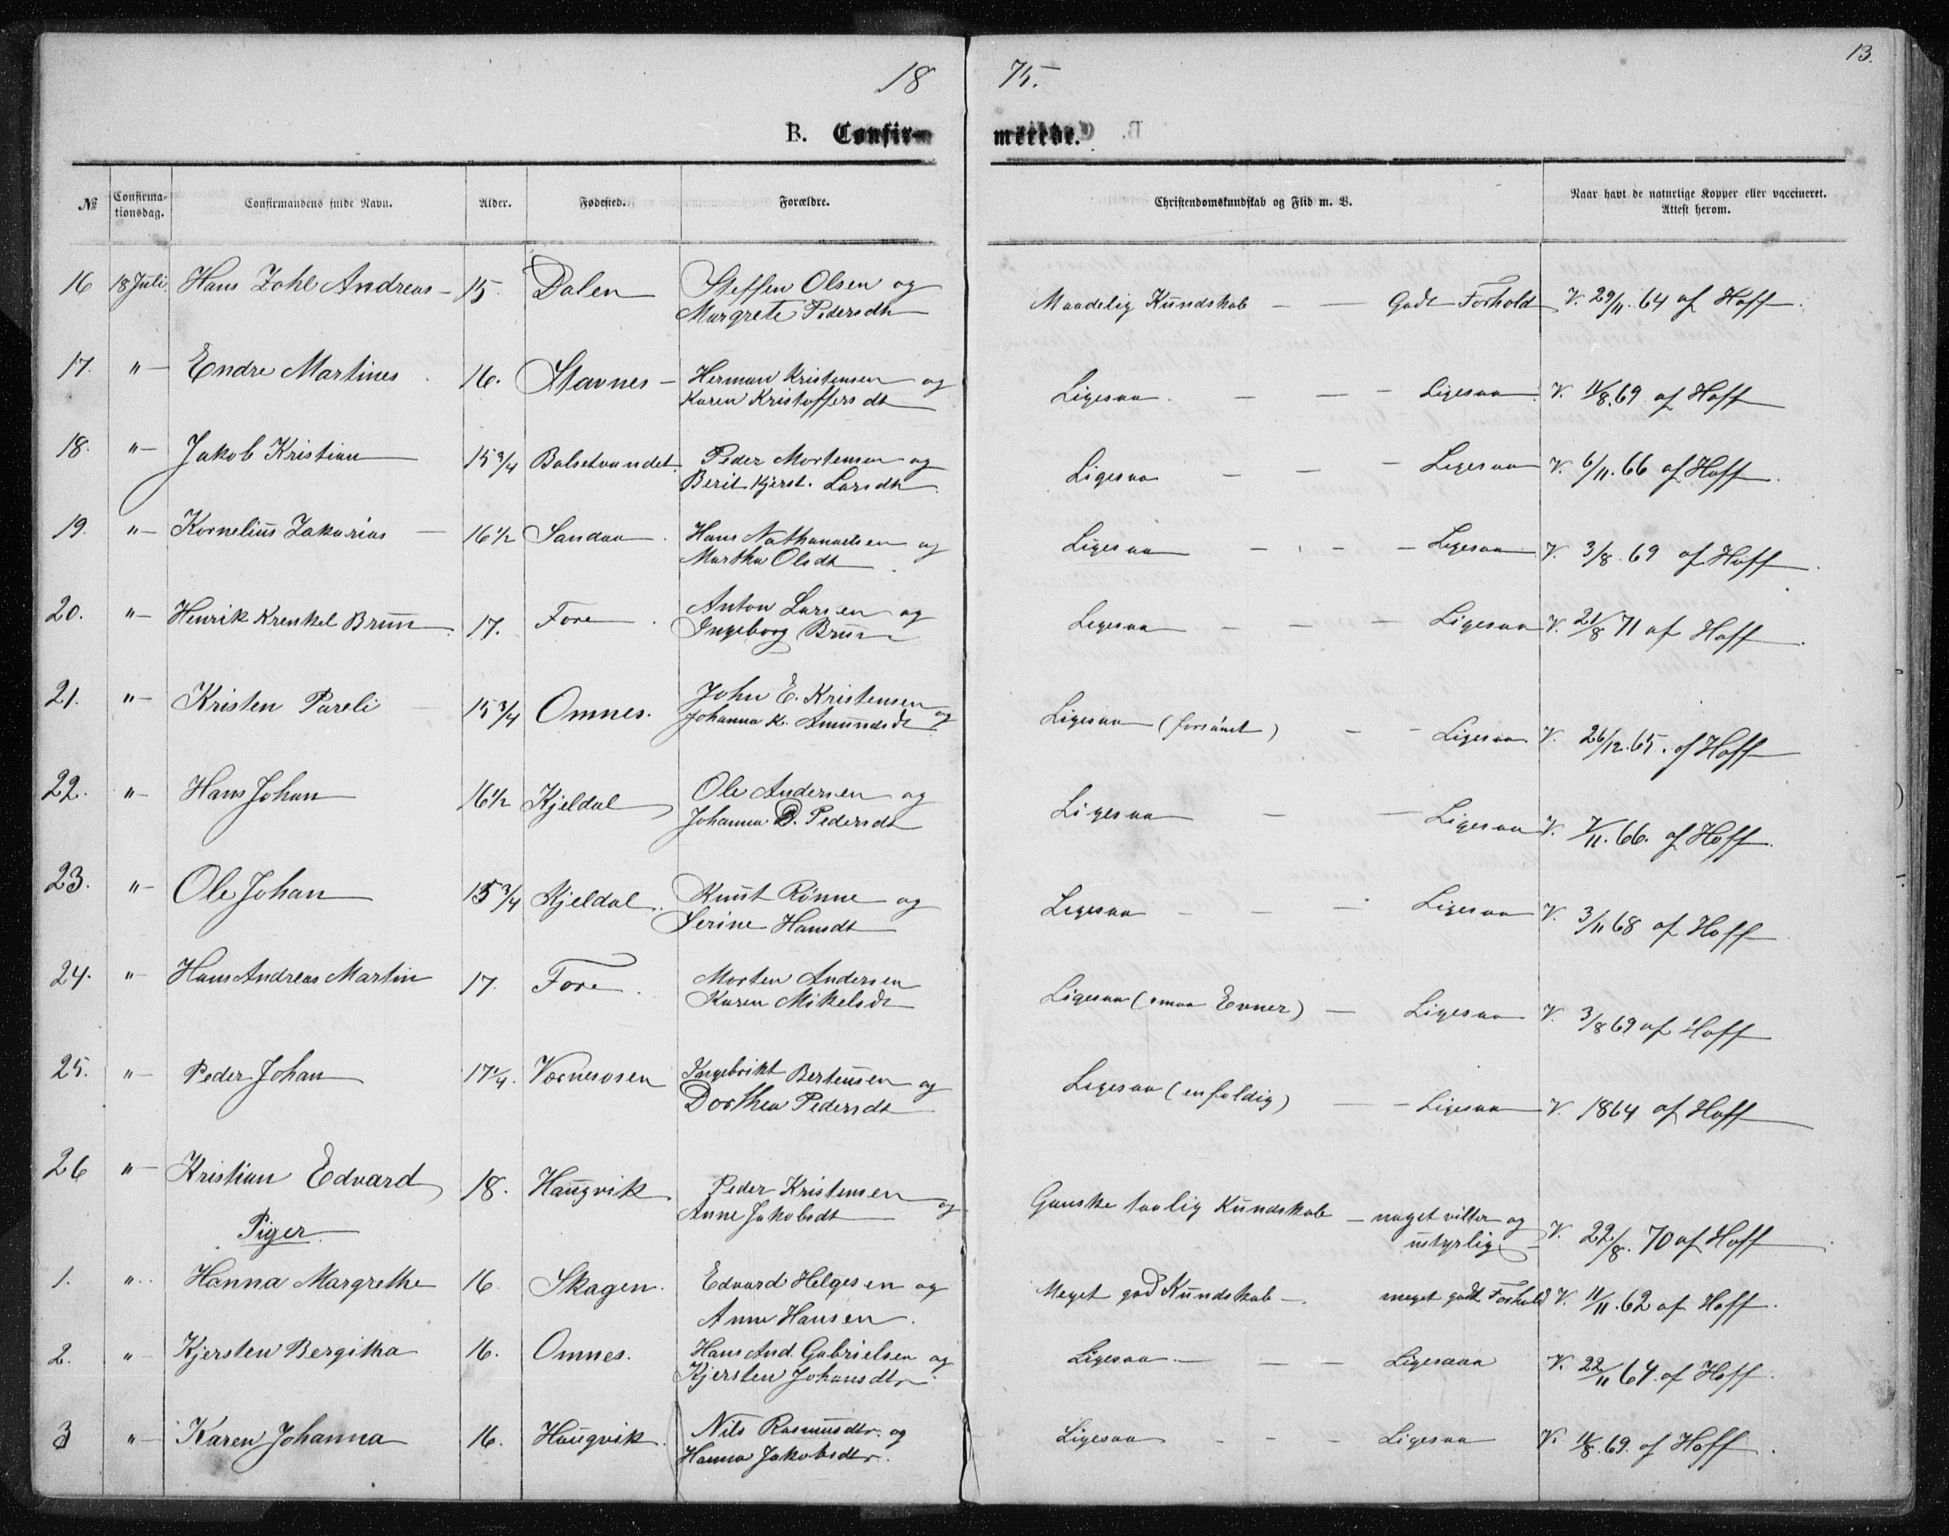 18 75. 13.
B. Confirmerede.
№ Confirmationsdag. Confirmandens fulde Navn. Alder. Fødested. Forældre. Christendomskundskab og Flid m. V. Naar havt de naturlige Kopper eller vaccineret. Attest herom.
16 18 Juli. Hans Johl Andreas 15. Dalen Steffen Olsen og Maadelig Kundskab — — Godt Forhold V. 29/11. 64 af Hoff.
Margrete Pedersdtr
17. " Endre Martines 16. Stavnes Herman Kristensen og Ligesaa — — — Ligesaa V. 11/8. 69 af Hoff
Karen Kristoffersdt
18. " Jakob Kristian 15 3/4 Balsetvandet. Peder Mortensen og Ligesaa — — — Ligesaa V. 6/11. 66 af Hoff.
Berit Kjerst. Larsdtr
19. " Kornelius Zakarias 16 1/2 Sandaa Hans Nathanaelsen og Ligesaa — — — Ligesaa V. 3/8. 69 af Hoff.
Martha Olsdt
20. " Henrik Krenkel Brun 17. Fore Anton Larsen og Ligesaa — — — Ligesaa V. 21/8 71 af Hoff.
Ingeborg Brun
21. " Kristen Pareli 15 3/4 Omnes. John E. Kristensen og Ligesaa (forsømt) — — Ligesaa. V. 26/12. 65. af Hoff
Johanna K. Amundsdt
22. " Hans Johan 16 1/2 Kjeldal Ole Andersen og Ligesaa — — Ligesaa V. 7/11. 66. af Hoff.
Johanna D. Pedersdt
23. " Ole Johan 15 3/4 Kjeldal. Knut Rønne og Ligesaa — — — Ligesaa V. 3/11 68 af Hoff
Serine Hansdt
24. " Hans Andreas Martin 17. Fore. Morten Andersen Ligesaa (smaa Evner) — Ligesaa V. 3/8 69 af Hoff
Karen Mikelsdt
25. " Peder Johan 17 1/4. Værnesosen Ingebrikt Bertensen og Ligesaa (enfoldig) — — Ligesaa V. 1864 af Hoff
Dorthea Pedersdt
26 " Kristian Edvard 18. Haugvik Peder Kristensen og Ganske taalig Kundskab — noget vilter og V. 22/8. 70 af Hoff.
Anne Jakobsdt ustyrlig —
Piger
1. " Hanna Margrethe 16. Skagen. Edvard Helgesen og Meget god Kundskab —. meget godt Forhold V. 11/11. 62 af Hoff.
Anne Hansen.
2. " Kjersten Bergitha 16. Omnes. Hans And. Gabrielsen og Ligesaa — — — Ligesaaa V. 22/11 64. af Hoff.
Kjersten Johansdtr
3 " Karen Johanna 16. Haugvik. Nils Rasmusdtr. og Ligesaa — — — Ligesaa V. 11/8. 69. af Hoff.
Hanna Jakobsdtr.